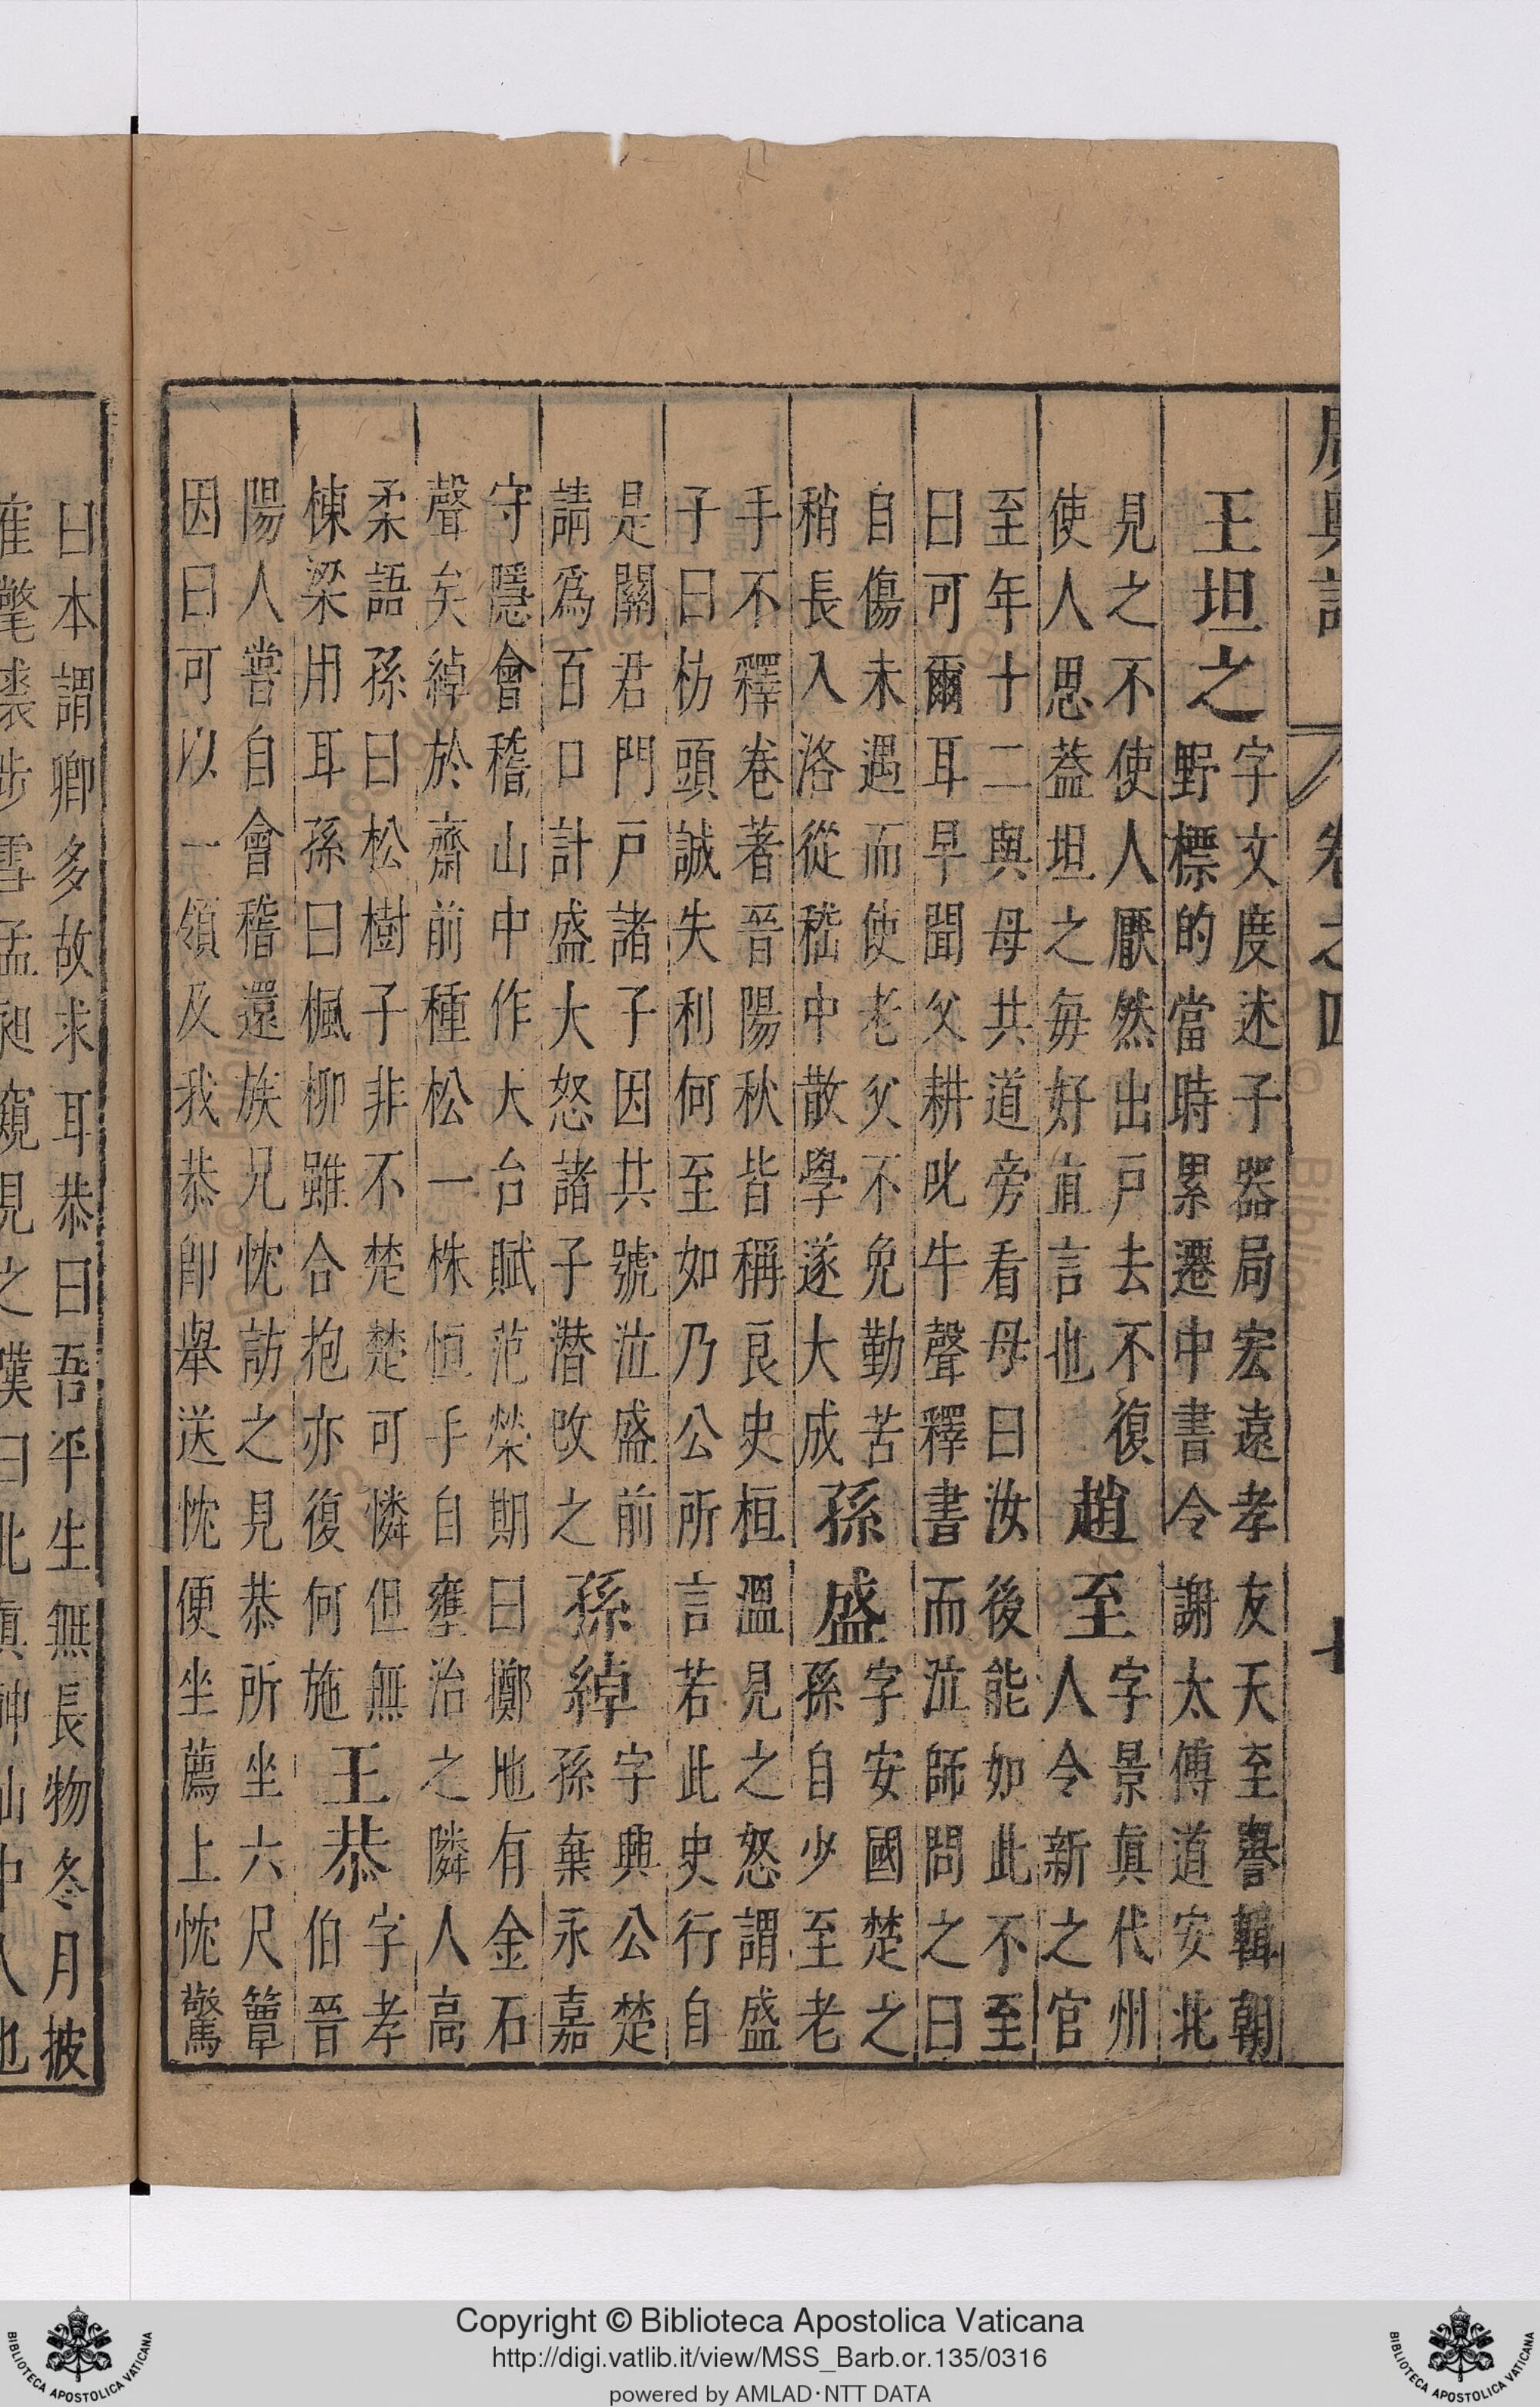 廣輿記 卷之四 七
王坦之
字文度述子器局宏遠孝友天至譽輯朝
野標的當時累遷中書令謝太傅道安北
見之不使人厭然出戸去不復
使人思葢坦之每好直言也
趙至
字景眞代州
人令新之官
至年十二與母共道旁看母曰汝後能如此不至
曰可爾耳早聞父耕叱牛聲釋書而泣師問之曰
自傷未遇而使老父不免勤苦
稍長入洛從嵇中散學遂大成
孫盛
字安國楚之
孫自少至老
手不釋卷著晉陽秋皆稱良史桓溫見之怒謂盛
子曰枋頭誠失利何至如乃公所言若此史行自
是關君門戸諸子因共號泣盛前
請爲百口計盛大怒諸子潜改之
孫綽
字興公楚
孫棄永嘉
守隱會稽山中作大台賦范榮期曰擲地有金石
聲矣綽於齋前種松一株恒手自壅治之隣人高
柔語孫曰松樹子非不楚楚可憐但無
棟梁用耳孫曰楓柳雖合抱亦復何施
王恭
字孝
伯晉
陽人嘗自會稽還族兄忱訪之見恭所坐六尺簟
因曰可以一領及我恭卽舉送忱便坐薦上忱驚
曰本謂卿多故求耳恭曰吾平生無長物冬月披
氅裘涉雪孟昶窺見之嘆曰此眞神仙中人也
Copyright © Biblioteca Apostolica Vaticana
http://digi.vatlib.it/view/MSS_Barb.or.135/0316
powered by AMLAD·NTT DATA
BIBLIOTECA APOSTOLICA VATICANA
BIBLIOTECA APOSTOLICA VATICANA